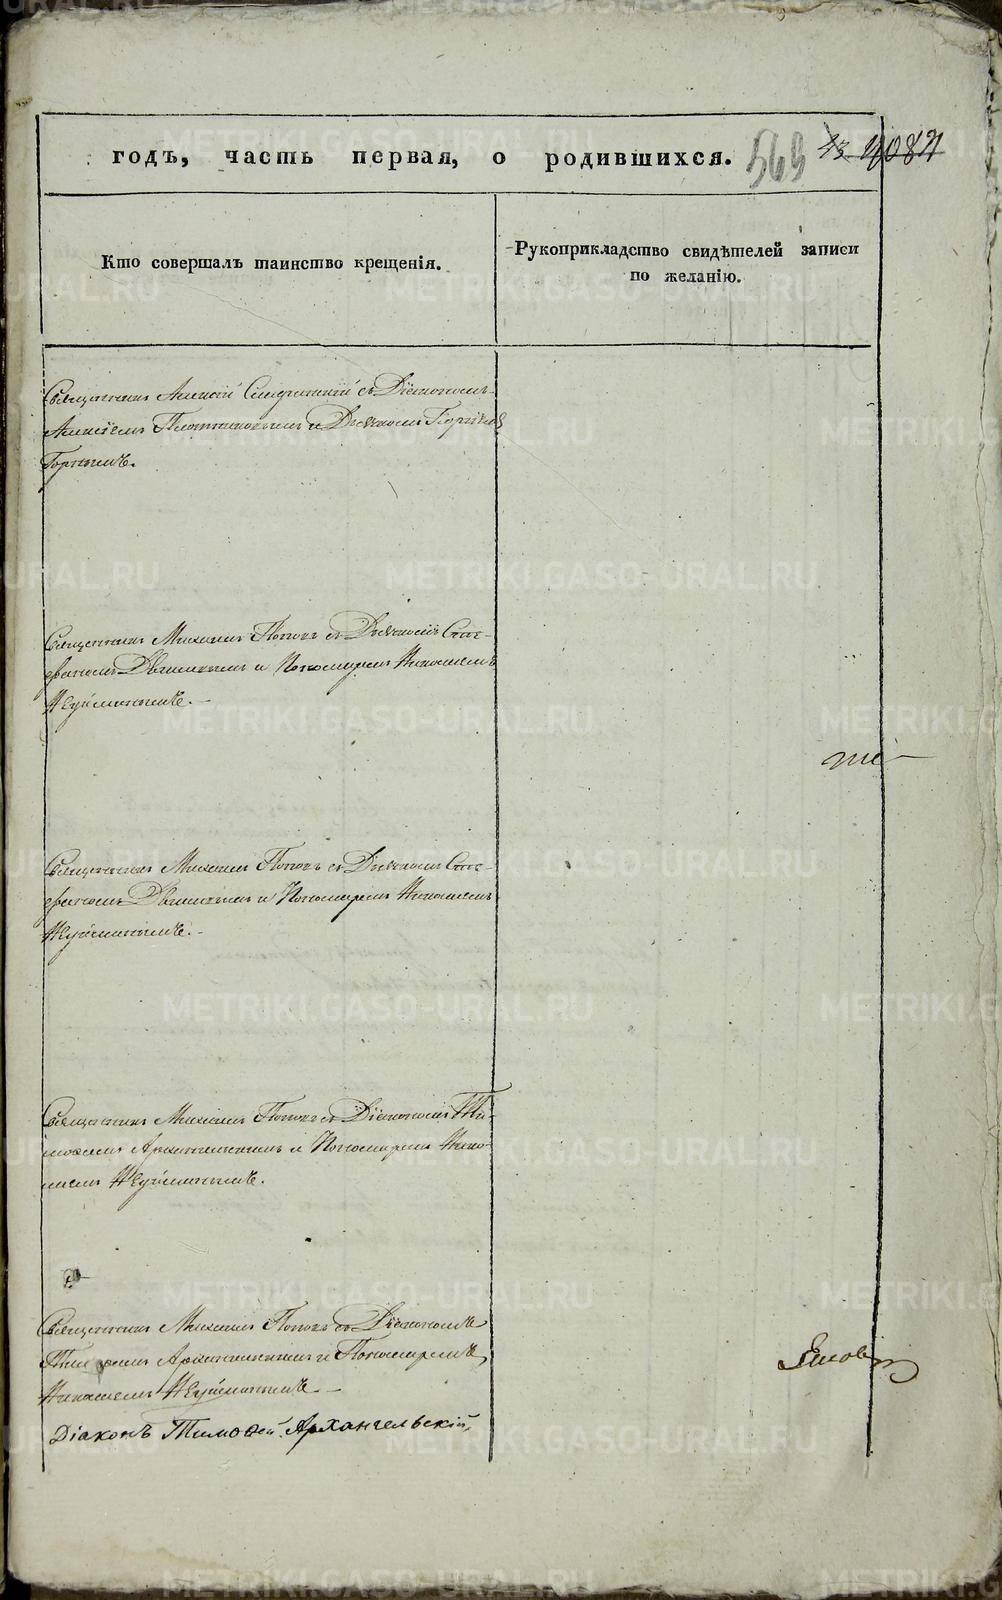 годъ, часть первая, о родившихся. 569
Кто совершалъ таинство крещенія.
Рукоприкладство свидѣтелей записи
по желанію.
Священник Алексій с Діакономъ
Алексѣем Плотниковым и Дьячком Георгіем
Горным.
Священник Михаил Попов с Дьячком Сте-
фаном Двиняниным и Пономарем Николаем
Неуйминым.-
Священник Михаил Попов с Дьячком Сте-
фаном Двиняниным и Пономарем Николаем
Неуйминым.-
Священник Михаил Попов с Діаконом Ти-
мофеем Архангельским и Пономарем Нико-
лаем Неуйминым.
Священник Михаил Попов с Діакономъ
Тимофеем Архангельским и Пономаремъ
Николаем Неуйминымъ.-
Діаконъ Тимоѳей Архангельскій,
METRIKI.GASO-URAL.RU